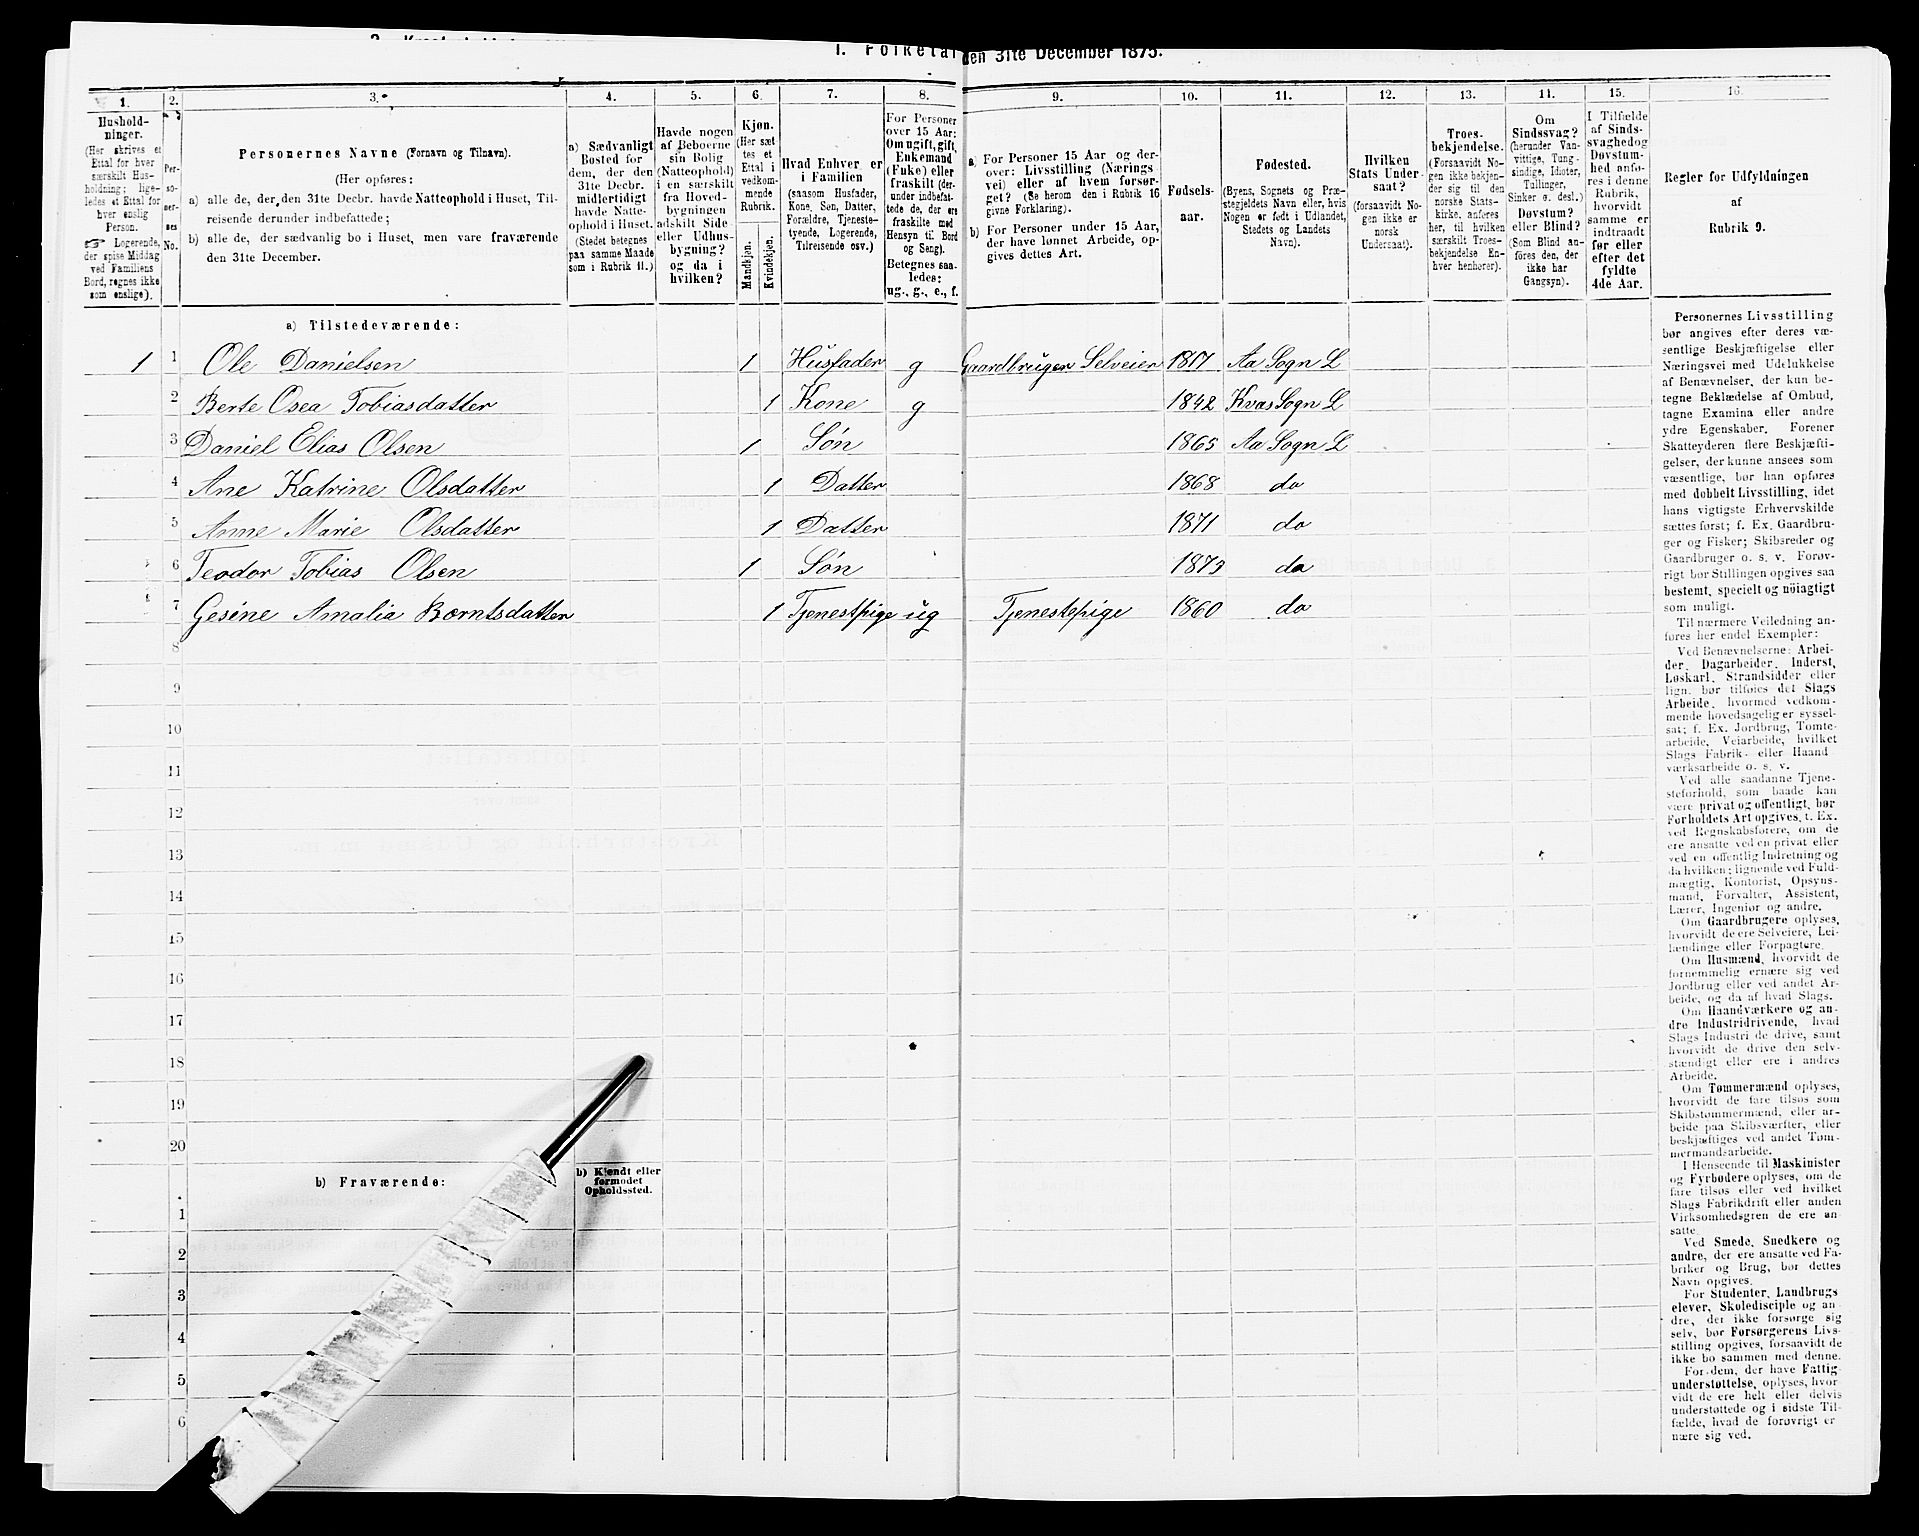 I. Folketal den 31te December 1875.
1.
2.
3.
4.
5.
6.
7.
8.
9.
10.
11.
12.
13.
14.
15.
16.
Hushold-
ninger.
(Her skrives et
Ettal for hver
særskilt Hus-
holdning; lige-
ledes et Ettal for
hver enslig
Person.
☞ Logerende,
der spise Middag
ved Familiens
Bord, regnes ikke
som enslige).
Per-
so-
ner-
nes
No.
Personernes Navne (Fornavn og Tilnavn).
(Her opføres:
a) alle de, der den 31te Decbr. havde Natteophold i Huset, Til-
reisende derunder indbefattede;
b) alle de, der sædvanlig bo i Huset, men vare fraværende
den 31te December.
a) Sædvanligt
Bosted for
dem, der den
31te Decbr.
midlertidigt
havde Natte-
ophold i Huset.
(Stedet betegnes
paa samme Maade
som i Rubrik 11.)
Havde nogen
af Beboerne
sin Bolig
(Natteophold)
i en særskilt
fra Hoved-
bygningen
adskilt Side-
eller Udhus-
bygning?
og da i
hvilken?
Kjøn.
(Her sæt-
tes et
Ettal i
vedkom-
mende
Rubrik.
Mandkjøn.
Kvindekjøn.
Hvad Enhver er
i Familien
(saasom Husfader,
Kone, Søn, Datter,
Forældre, Tjeneste-
tyende, Logerende,
Tilreisende osv.)
For Personer
over 15 Aar:
Om ugift, gift,
Enkemand
(Fuke) eller
fraskilt (der-
under indbefat-
tede de, der ere
fraskilte med
Hensyn til Bord
og Seng).
Betegnes saa-
ledes:
ug., g., e., f.
a) For Personer 15 Aar og der-
over: Livsstilling (Nærings-
vei) eller af hvem forsør-
get? (Se herom den i Rubrik 16
givne Forklaring).
b) For Personer under 15 Aar,
der have lønnet Arbeide, op-
gives dettes Art.
Fødsels-
aar.
Fødested.
(Byens, Sognets og Præ-
stegjeldets Navn eller, hvis
Nogen er født i Udlandet,
Stedets og Landets
Navn).
Hvilken
Stats Under-
saat?
(forsaavidt No-
gen ikke er
norsk
Undersaat).
Troes-
bekjendelse.
(Forsaavidt No-
gen ikke bekjen-
der sig til den
norske Stats-
kirke, anføres
her, til hvilken
særskilt Troes-
bekjendelse En-
hver henhører).
Om
Sindssvag?
(herunder Van-
vittige, Tung-
sindige, Idioter,
Tullinger,
Sinker o. desl.)
Døvstum?
eller Blind?
(Som Blind an-
føres den, der
ikke har
Gangsyn).
I Tilfælde
af Sinds-
svaghed og
Døvstum-
hed anfø-
res i denne
Rubrik,
hvorvidt
samme er
indtraadt
før eller
efter det
fyldte
4de Aar.
Regler for Udfyldningen
af
Rubrik 9.
a) Tilstedeværende:
1 1 Ole Danielsen 1 Husfader g Gaardbruger Selveier 1817 Aa Sogn L
2 Berte Osea Tobiasdatter 1 Kone g 1842 Kvas Sogn L
3 Daniel Elias Olsen 1 Søn 1865 Aa Sogn L
4 Ane Katrine Olsdatter 1 Datter 1868 do
5 Anne Marie Olsdatter 1 Datter 1871 do
6 Teodor Tobias Olsen 1 Søn 1873 do
7 Gesine Amalia Børntsdatter 1 Tjenestpige ug Tjenestepige 1860 do
8
9
10
11
12
13
14
15
16
17
18
19
20
b) Fraværende:
b) Kjendt eller
formodet
Opholdssted.
1
2
3
4
5
6
Personernes Livsstilling
bør angives efter deres væ-
sentlige Beskjæftigelse eller
Næringsvei med Udelukkelse
af Benævnelser, der kun be-
tegne Beklædelse af Ombud,
tagne Examina eller andre
ydre Egenskaber. Forener
Skatteyderen flere Beskjæfti-
gelser, der kunne ansees som
væsentlige, bør han opføres
med dobbelt Livsstilling, idet
hans vigtigste Erhvervskilde
sættes først; f. Ex. Gaardbru-
ger og Fisker; Skibsreder og
Gaardbruger o. s. v. Forøv-
rigt bør Stillingen opgives saa
bestemt, specielt og nøiagtigt
som muligt.
Til nærmere Veiledning an-
føres her endel Exempler:
Ved Benævnelserne: Arbei-
der, Dagarbeider, Inderst,
Løskarl, Strandsidder eller
lign. bør tilføies det Slags
Arbeide, hvormed vedkom-
mende hovedsagelig er syssel-
sat; f. Ex. Jordbrug, Tomte-
arbeide, Veiarbeide, hvilket
Slags Fabrik- eller Haand-
værksarbeide o. s. v.
Ved alle saadanne Tjene-
steforhold, som baade kan
være privat og offentligt, bør
Forholdets Art opgives, f. Ex.
ved Regnskabsførere, om de
ere ansatte ved en privat eller
ved en offentlig Indretning og
da hvilken; lignende ved Fuld-
mægtig, Kontorist, Opsyns-
mand, Forvalter, Assistent,
Lærer, Ingeniør og andre.
Om Gaardbrugere oplyses,
hvorvidt de ere Selveiere, Lei-
lændinge eller Forpagtere.
Om Husmænd, hvorvidt de
fornemmelig ernære sig ved
Jordbrug eller ved andet Ar-
beide, og da af hvad Slags.
Om Haandværkere og an-
dre Industridrivende, hvad
Slags Industri de drive, samt
hvorvidt de drive den selv-
stændigt eller ere i andres
Arbeide.
Om Tømmermænd oplyses,
hvorvidt de fare tilsøs som
Skibstømmermænd, eller ar-
beide paa Skibsværfter, eller
beskjæftiges ved andet Tøm-
mermandsarbeide.
I Henseende til Maskinister
og Fyrbødere oplyses, om de
fare tilsøs eller ved hvilket
Slags Fabrikdrift eller anden
Virksomhedsgren de ere an-
satte.
Ved Smede, Snedkere og
andre, der ere ansatte ved Fa-
briker og Brug, bør dettes
Navn opgives.
For Studenter, Landbrugs-
elever, Skoledisciple og an-
dre, der ikke forsørge sig
selv, bør Forsørgerens Livs-
stilling opgives, forsaavidt de
ikke bo sammen med denne.
For dem, der have Fattig-
understøttelse, oplyses, hvor-
vidt de ere helt eller delvis
understøttede og i sidste Til-
fælde, hvad de forøvrigt er-
nære sig ved.